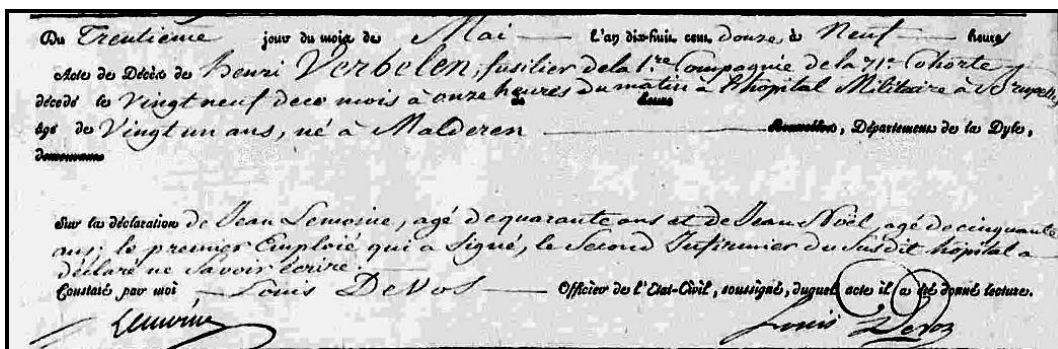 Du Trentieme jour du mois de Mai l'an dix-huit cent douze à Neuf heures
Acte de Décès de henri Verbelen, fusilier de la 1.re Compagnie de la 71.e Cohorte
décédé le Vingt neuf de ce mois à onze heures du matin à l'hopital Militaire à Bruxelles
âgé de Vingt un ans, né à Malderen Bruxelles, Département de la Dyle,
demeurant
Sur la déclaration de Jean Lemoine, agé de quarante ans et de Jean Noël, agé de cinquante
ans; le premier Emploié qui a Signé, le Second Infirmier du Susdit hôpital a
déclaré ne Savoir écrire.
Constaté par moi, Louis DeVos Officier de l'Etat-Civil, soussigné, duquel acte il a été donné lecture.
Lemoine Louis Devos